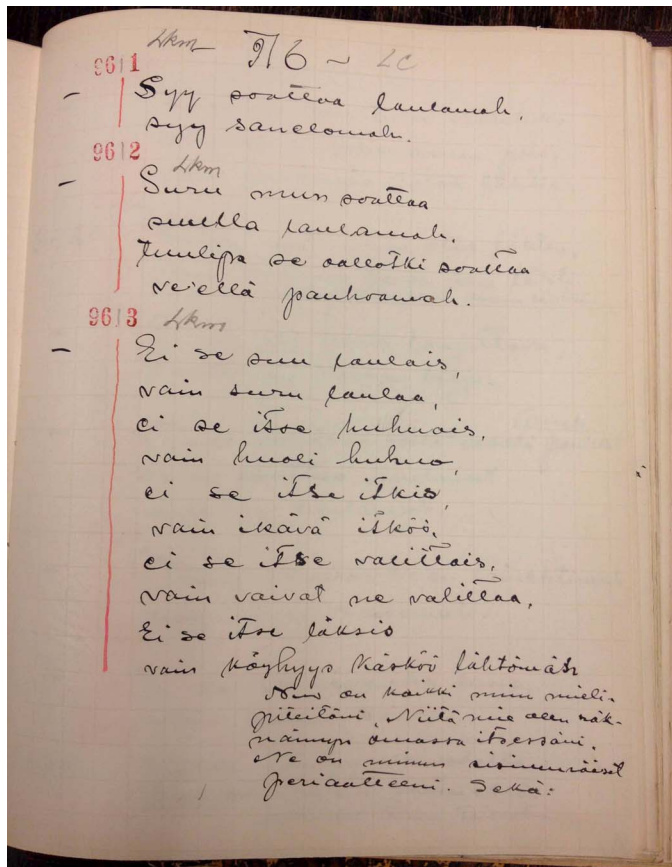 Lkm
9611
Syy soattaa laulamah,
syy sanelomah.
9612
Lkm
Suru mun soattaa
suulla laulamah,
tuulipa se oallotki soattaa
ve'ellä pauhoamah.
9613
Lkm
Ei se suu laulais,
vain suru laulaa,
ei se itse huhuois,
vain huoli huhuo,
ei se itse itkis,
vain ikävä itköö,
ei se itse valittais,
vain vaivat ne valittaa,
Ei se itse läksis
vain köyhyys käsköö lähtömäh
New on kaikki miun mieli-
piteitäni, Niitä mie olen näh-
nännyn omassa itsessäni.
Ne on minun sisimmäiset
periaatteeni. Sekä: